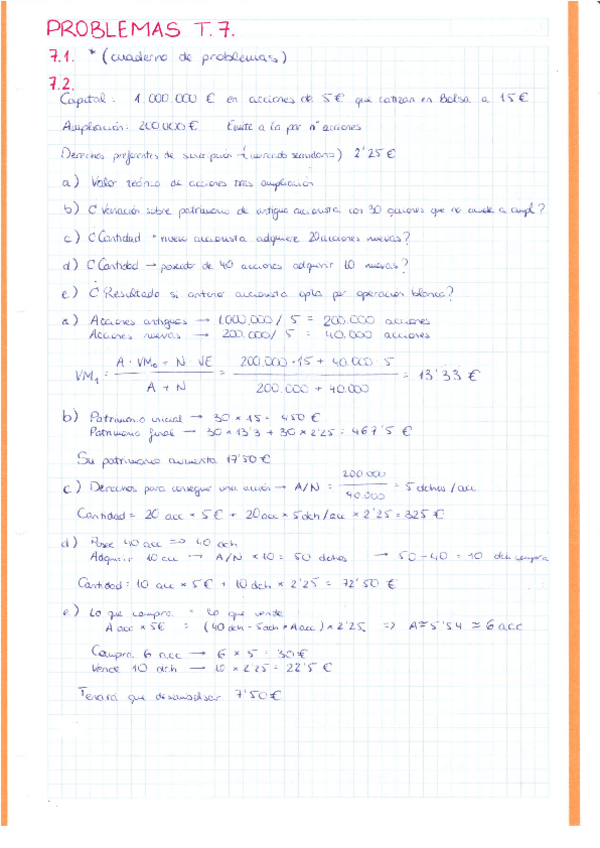 PROBLEMAS T.7.
7.1. * (cuaderno de problemas)
7.2.
Capital: 1.000.000 € en acciones de 5€ que cotizan en Bolsa a 15€
Ampliación: 200.000€ Emite a la par nº acciones
Derechos preferentes de suscripción (mercado secundario) 2'25€
a) Valor teórico de acciones tras ampliación
b) ¿Variación sobre patrimonio de antiguo accionista con 30 acciones que no acude a ampl?
c) ¿Cantidad nuevo accionista adquiere 20 acciones nuevas?
d) ¿Cantidad → poseedor de 40 acciones adquirir 10 nuevas?
e) ¿Resultado si anterior accionista opta por operación blanca?
a) Acciones antiguas → 1.000.000 / 5 = 200.000 acciones
Acciones nuevas → 200.000 / 5 = 40.000 acciones
VM₁ = A · VM₀ + N · VE / A + N = 200.000 · 15 + 40.000 · 5 / 200.000 + 40.000 = 13'33 €
b) Patrimonio inicial → 30 × 15 = 450 €
Patrimonio final → 30 × 13'3 + 30 × 2'25 = 467'5 €
Su patrimonio aumenta 17'50€
c) Derechos para conseguir una acción → A/N = 200.000 / 40.000 = 5 dchos/acc
Cantidad = 20 acc × 5€ + 20 acc × 5 dch/acc × 2'25 = 325 €
d) Posee 40 acc => 40 dch
Adquirir 10 acc → A/N × 10 = 50 dchos → 50 - 40 = 10 dch compra
Cantidad = 10 acc × 5€ + 10 dch × 2'25 = 72'50 €
e) Lo que compra = lo que vende
A acc × 5€ = (40 dch - 5 dch × A acc) × 2'25 => A ≈ 5'54 ≈ 6 acc
Compra 6 acc → 6 × 5 = 30€
Vende 10 dch → 10 × 2'25 = 22'5 €
Tendrá que desembolsar 7'50€